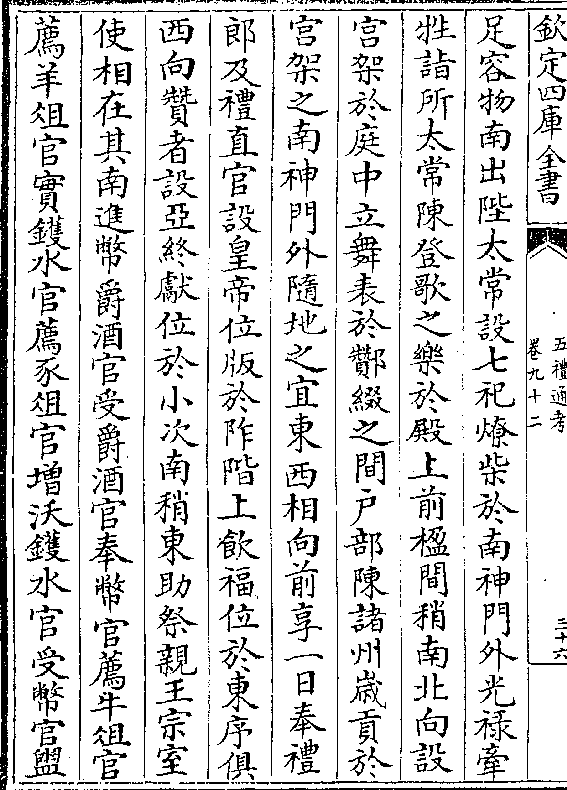 欽定四庫全書
五禮通考
卷九十二
三十六
足容物南出陛太常設七祀燎柴於南神門外光禄牽
牲詣所太常陳登歌之樂於殿上前楹間稍南北向設
宮架於庭中立舞表於酇綴之間戸部陳諸州歲貢於
宮架之南神門外隨地之宜東西相向前享一日奉禮
郎及禮直官設皇帝位版於阼階上飲福位於東序俱
西向贊者設亞終獻位於小次南稍東助祭親王宗室
使相在其南進幣爵酒官受爵酒官奉幣官薦牛俎官
薦羊俎官實鑊水官薦豕俎官增沃鑊水官受幣官盥